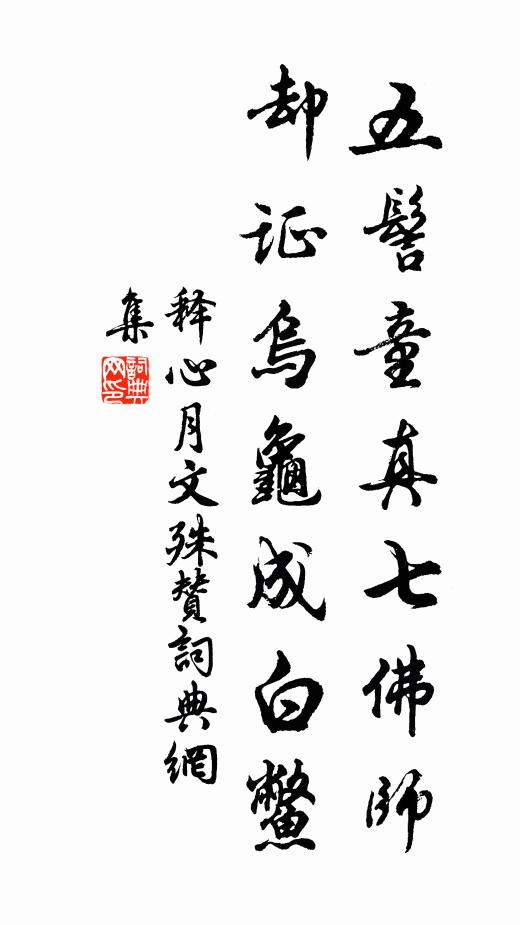 五髻童真七佛師
却证烏龜成白鱉
释心月文殊贊詞典網
集
詞典
网印